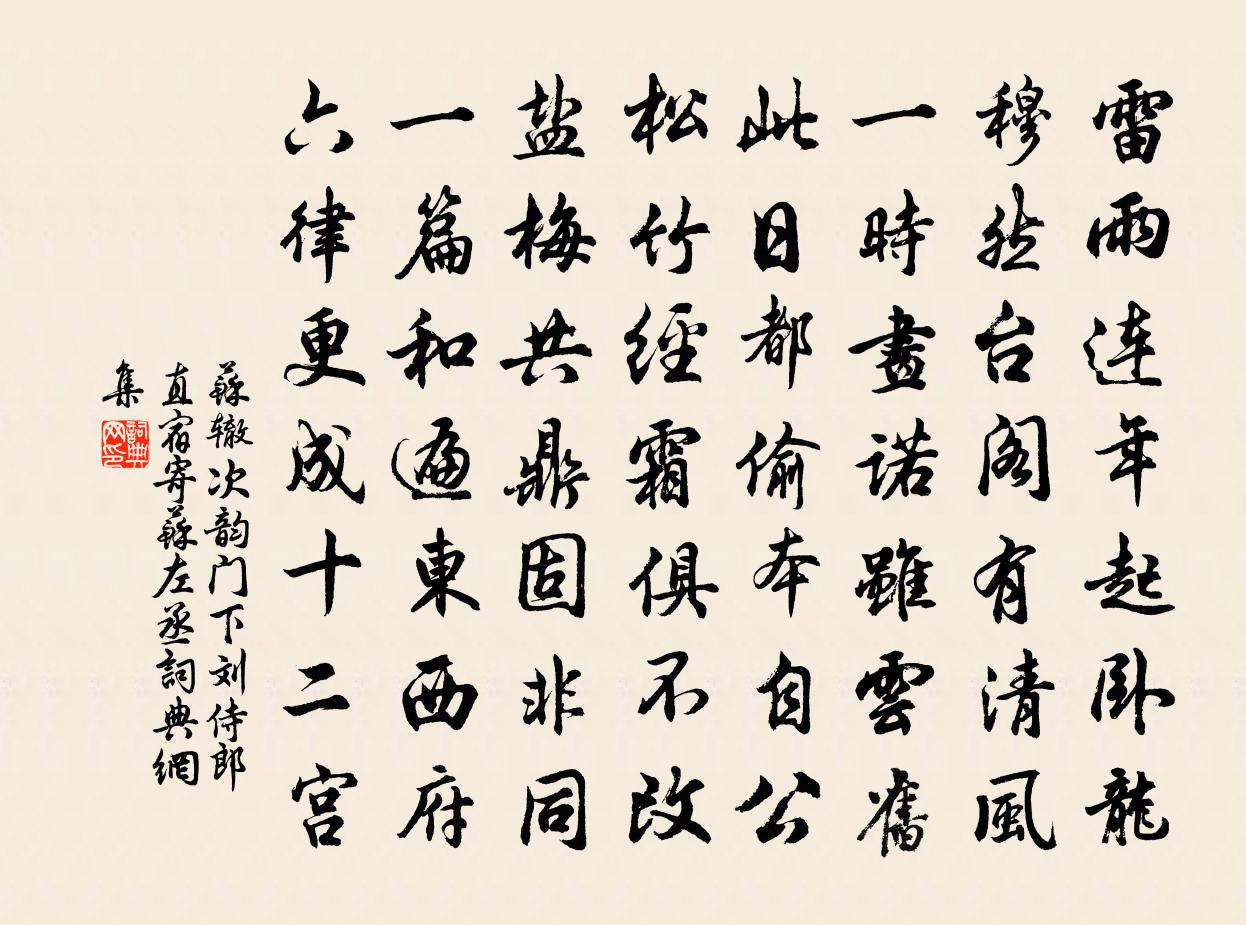 雷雨连年起卧龍
穆然台阁有清風
一時畫诺雖雲舊
此日都偷本自公
松竹經霜俱不改
盐梅共鼎固非同
一篇和遍東西府
六律更成十二宫
蘇辙次韵门下刘侍郎
直宿寄蘇左丞詞典網
集
詞典网印